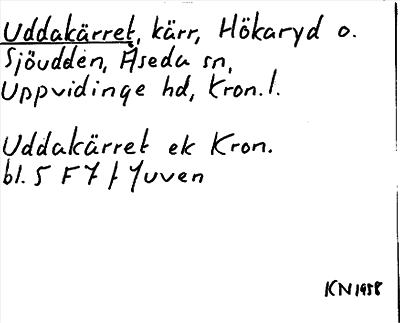 Uddakärret, kärr, Hökaryd o.
Sjöudden, Åseda sn,
Uppvidinge hd, Kron.l.
Uddakärret ek Kron.
bl. 5 F 7 f Yuven
KN 1958